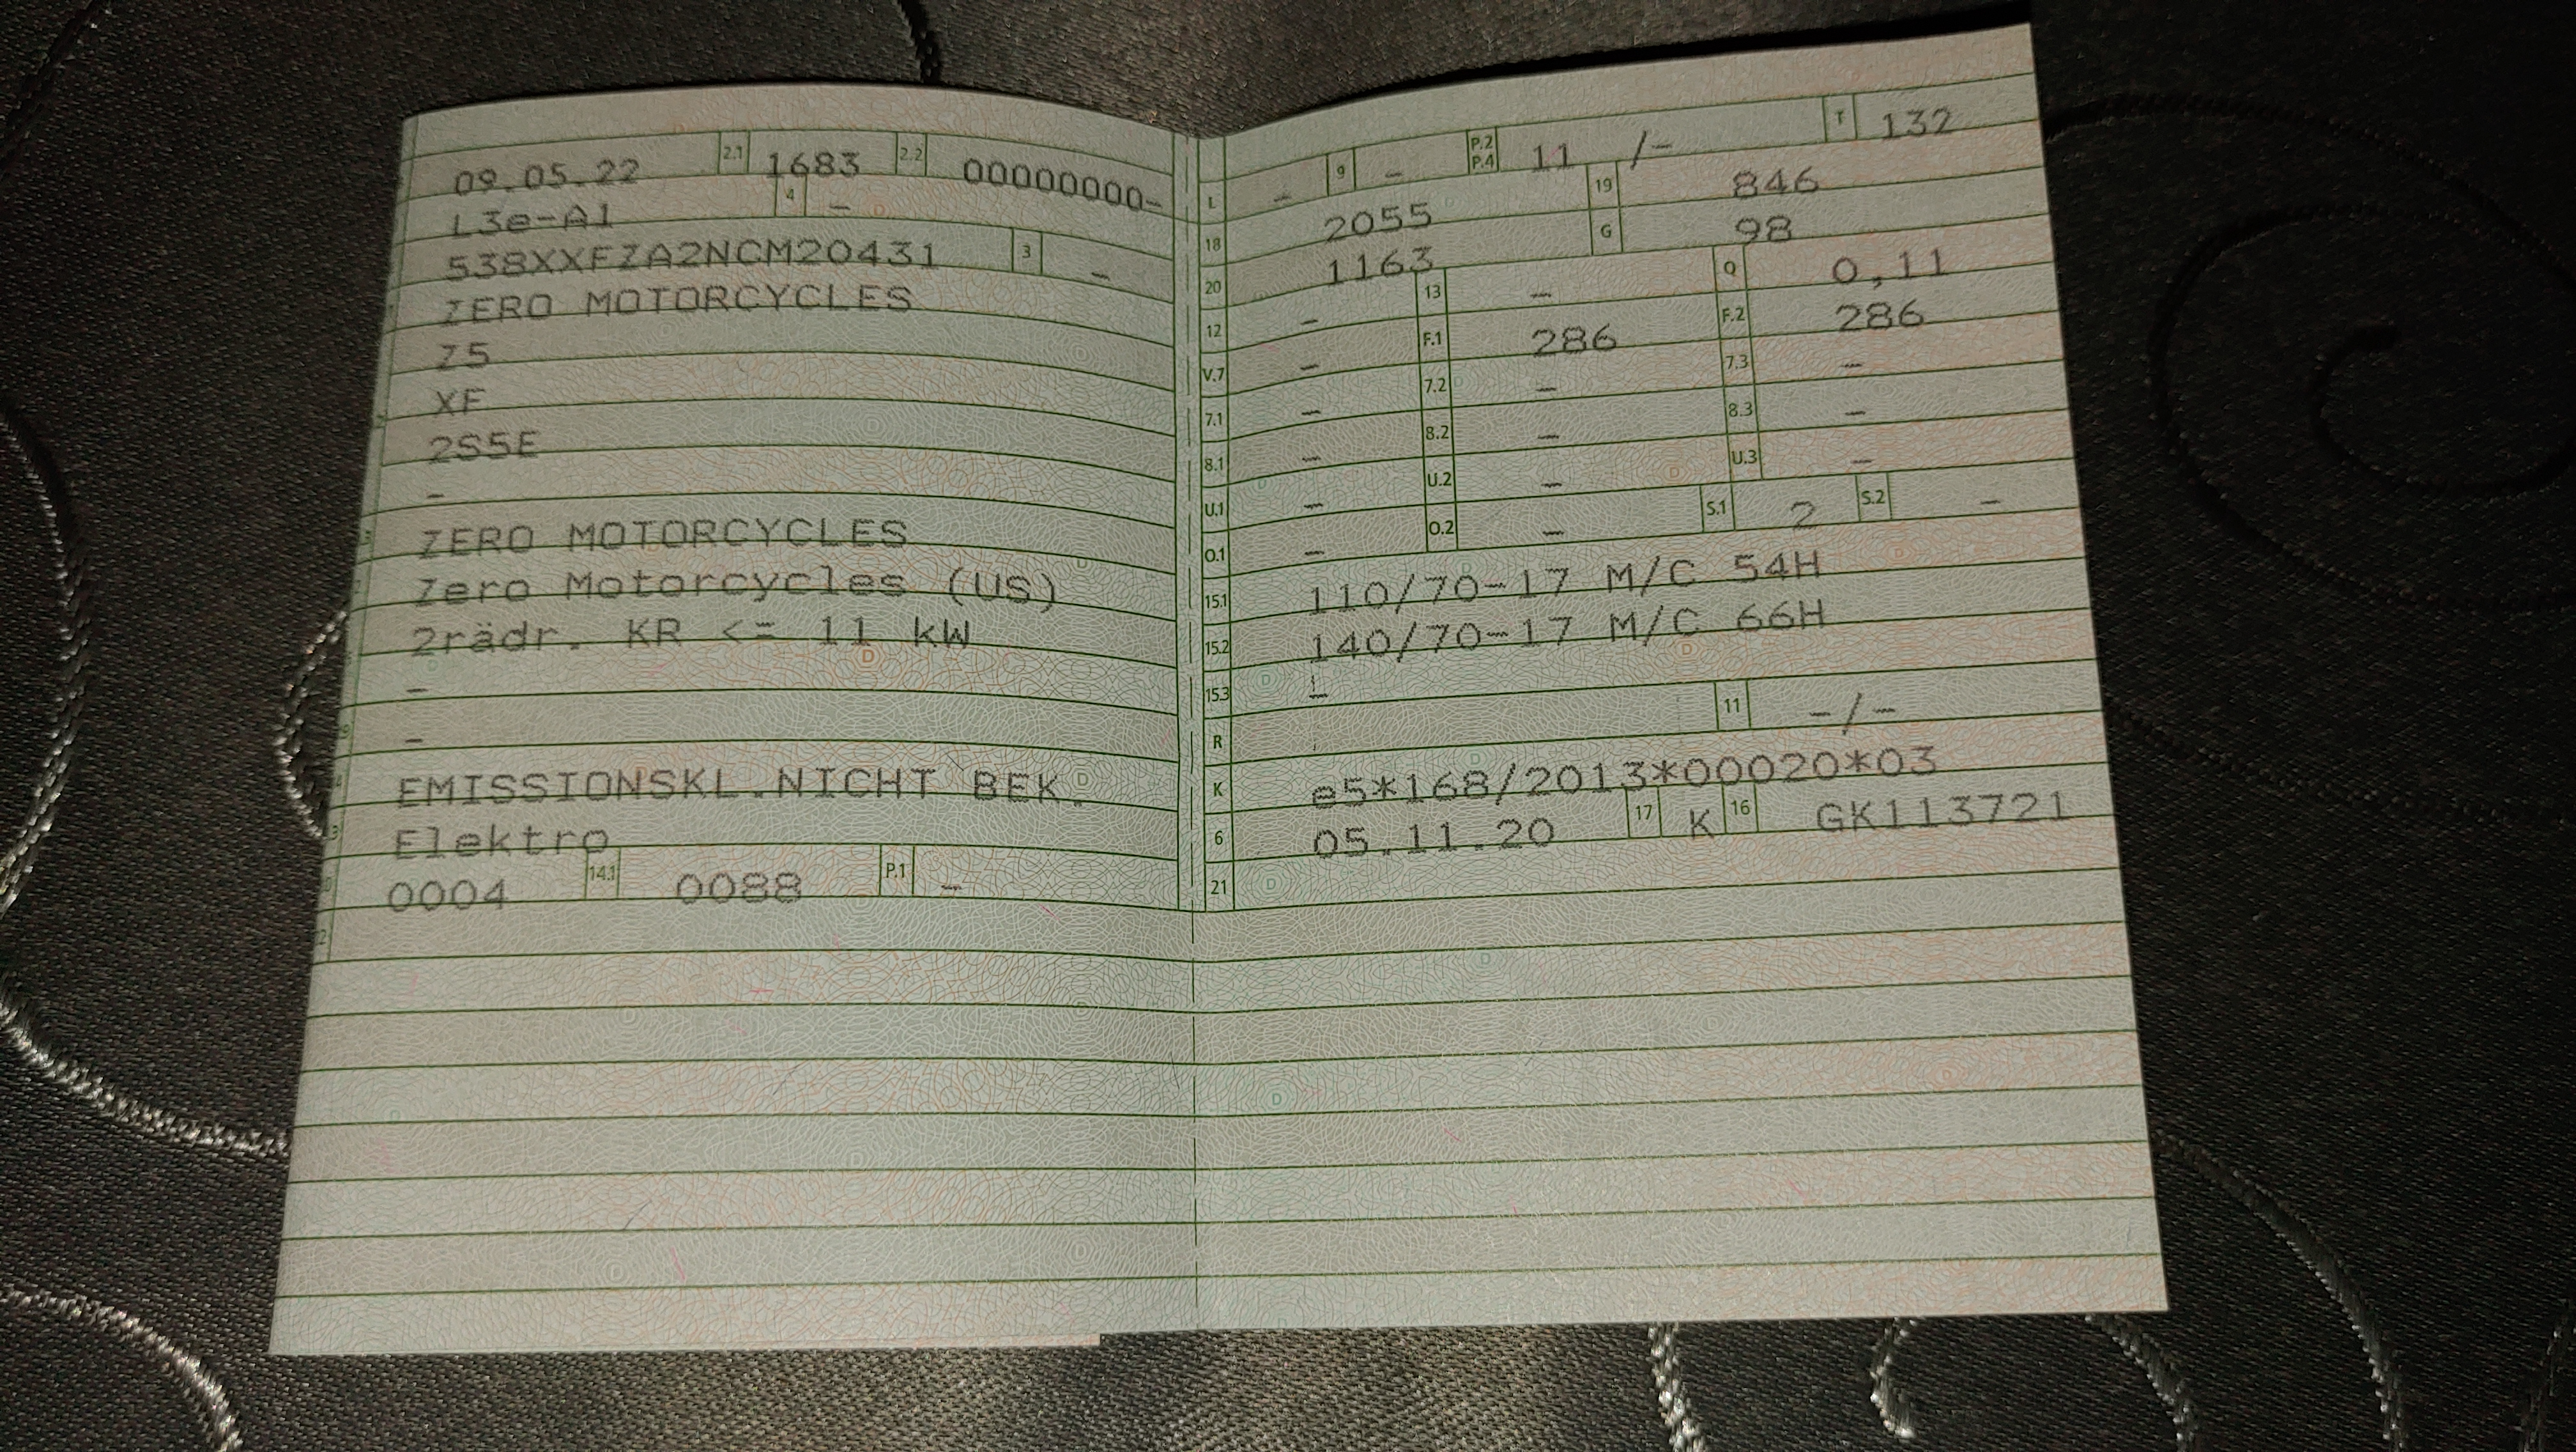 09.05.22 2.1 1683 2.2 00000000-
L3e-A1 4 -
538XXFZA2NCM20431 3 -
ZERO MOTORCYCLES
Z5
XF
2S5E
-
ZERO MOTORCYCLES
Zero Motorcycles (US)
2rädr. KR <= 11 kW
-
-
EMISSIONSKL.NICHT BEK.
Elektro
0004 14.1 0088 P.1 -
L - 9 - P.2 P.4 11 /- T 132
18 2055 19 846
20 1163 G 98
12 - 13 - Q 0,11
V.7 - F.1 286 F.2 286
7.1 - 7.2 - 7.3 -
8.1 - 8.2 - 8.3 -
U.1 - U.2 - U.3 -
O.1 - O.2 - S.1 2 S.2 -
15.1 110/70-17 M/C 54H
15.2 140/70-17 M/C 66H
15.3 -
R 11 -/-
K e5*168/2013*00020*03
6 05.11.20 17 K 16 GK113721
21